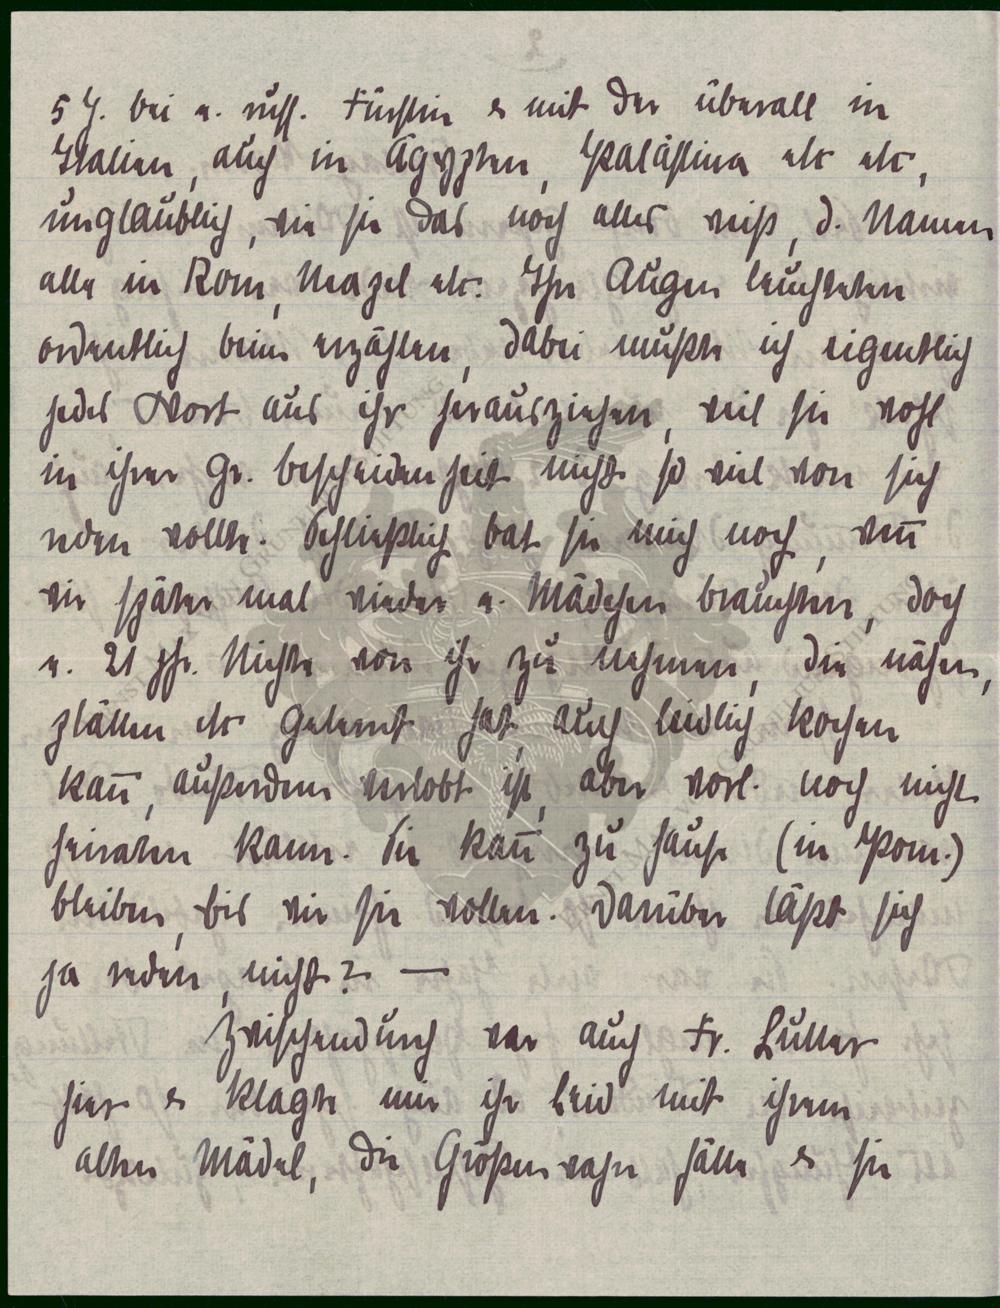 5 J. bei e. russ. Fürstin & mit der überall in
Italien, auch in Ägypten, Palästina etc etc,
unglaublich, wie sie das noch alles weiß, d. Namen
alle in Rom, Neapel etc. Ihre Augen leuchteten
ordentlich beim erzählen, dabei mußte ich eigentlich
jedes Wort aus ihr herausziehen, weil sie wohl
in ihrer Gr. bescheidenheit nicht so viel von sich
reden wollte. Schließlich bat sie mich noch, weñ
wir später mal wieder e. Mädchen brauchten, doch
e. 21 jhr. Nichte von ihr zu nehmen, die nähen,
plätten etc gelernt hat, auch leidlich kochen
kañ, außerdem verlobt ist, aber vorl. noch nicht
heiraten kann. Sie kañ zu hause (in Pom.)
bleiben, bis wir sie wollen. Darüber läßt sich
ja reden, nicht? —
Zwischendurch war auch Fr. Lutter
hier & klagte mir ihr leid mit ihrem
alten Mädel, die Größenwahn hätte & sie